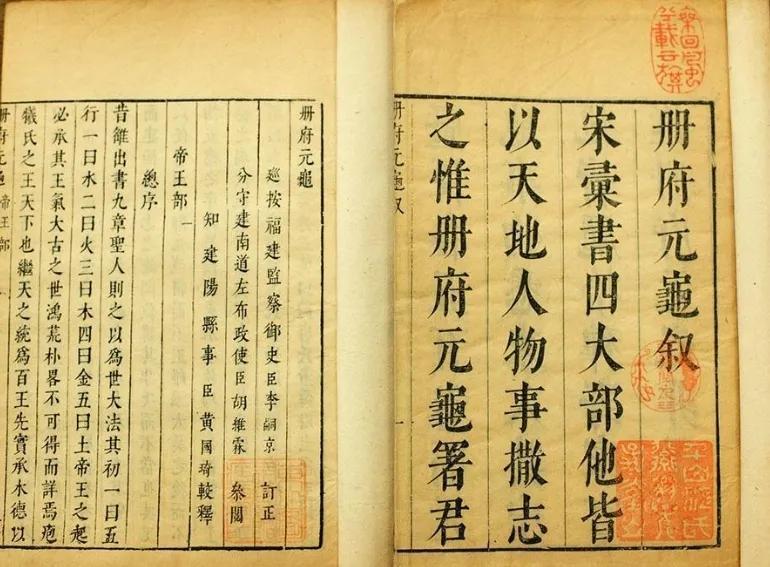 册府元龜叙
宋彙書四大部他皆
以天地人物事撒志
之惟册府元龜署君
册府元龜叙
册府元龜
巡按福建監察御史臣李嗣京 訂正
分守建南道左布政使臣胡維霖 叅閱
知建陽縣事臣黃國琦較釋
帝王部 一
總序
昔雒出書九章聖人則之以爲世大法其初一曰五
行一曰水二曰火三曰木四曰金五曰土帝王之起
必承其王氣大古之世鴻荒朴畧不可得而詳焉庖
犧氏之王天下也繼天之統爲百王先實承木德以
册府元龜 帝王部